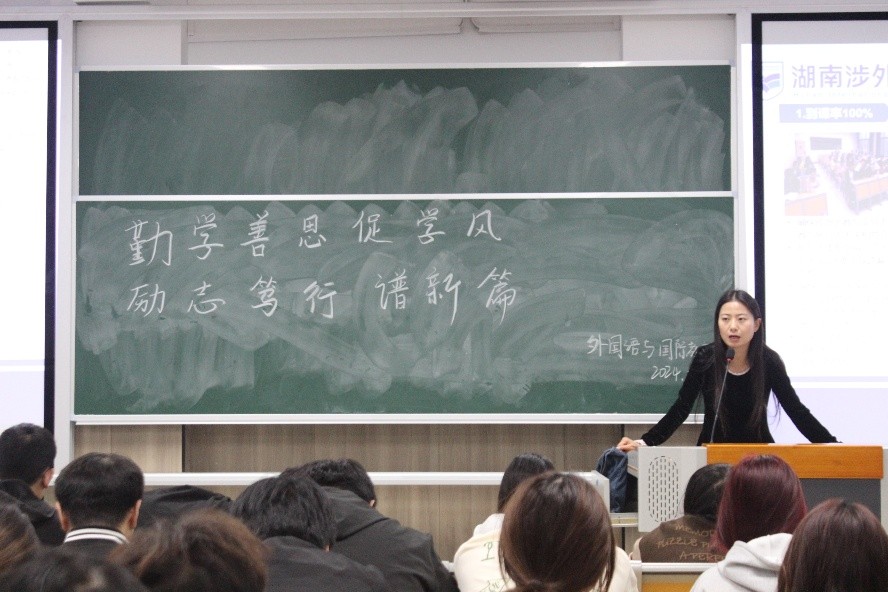 勤学善思促学风
励志笃行 谱新篇
外国语与国际
2024.
湖南涉外
1.到课率100%